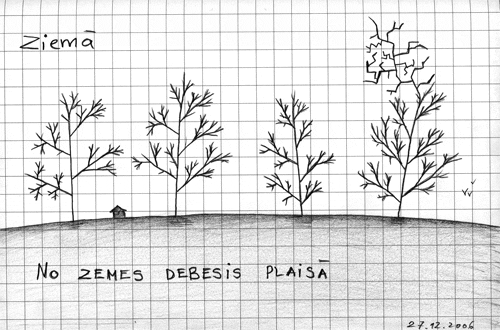 Ziemā
No ZEMES DEBESIS PLAISĀ
27.12.2006